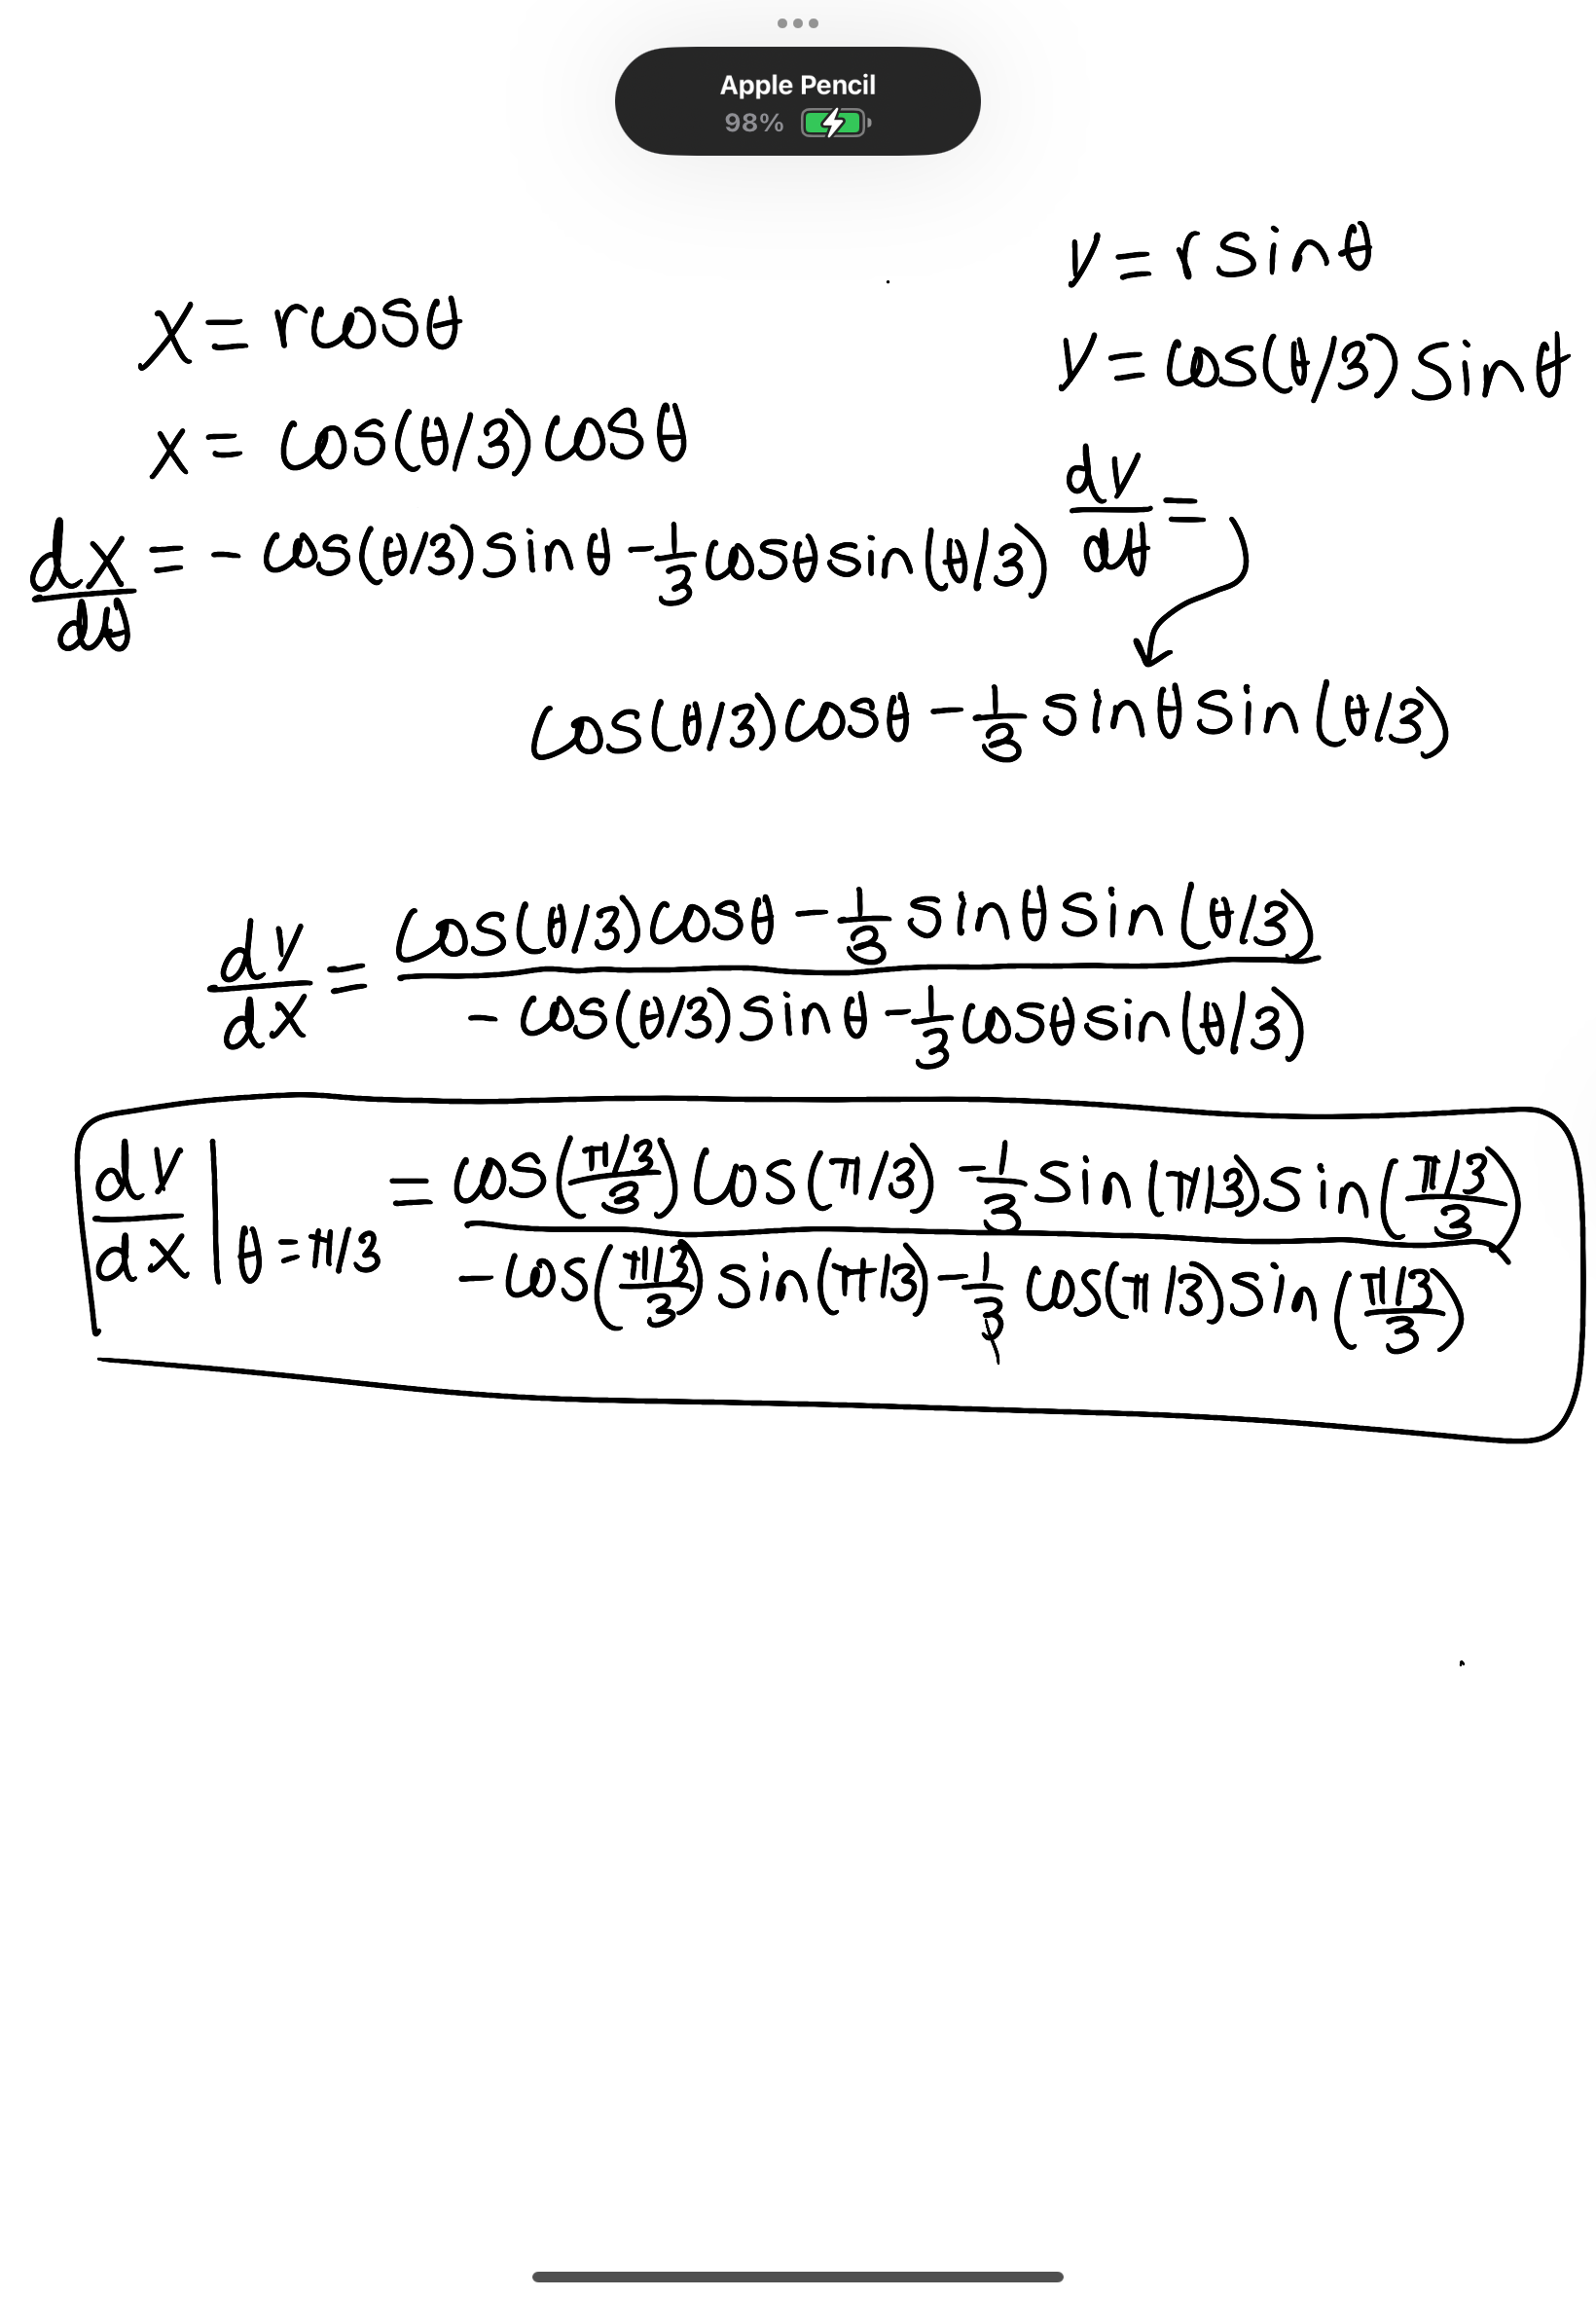 Apple Pencil
98%
y = r sinθ
x = rcosθ
y = cos(θ/3) sinθ
x = cos(θ/3)cosθ
dy/dθ =
dx/dθ = - cos(θ/3) sinθ - 1/3 cosθ sin(θ/3)
cos(θ/3)cosθ - 1/3 sinθ sin(θ/3)
dy/dx = cos(θ/3)cosθ - 1/3 sinθ sin(θ/3)
- cos(θ/3) sinθ - 1/3 cosθ sin(θ/3)
dy/dx | θ = π/3 = cos((π/3)/3) cos(π/3) - 1/3 sin(π/3) sin((π/3)/3)
- cos((π/3)/3) sin(π/3) - 1/3 cos(π/3) sin((π/3)/3)